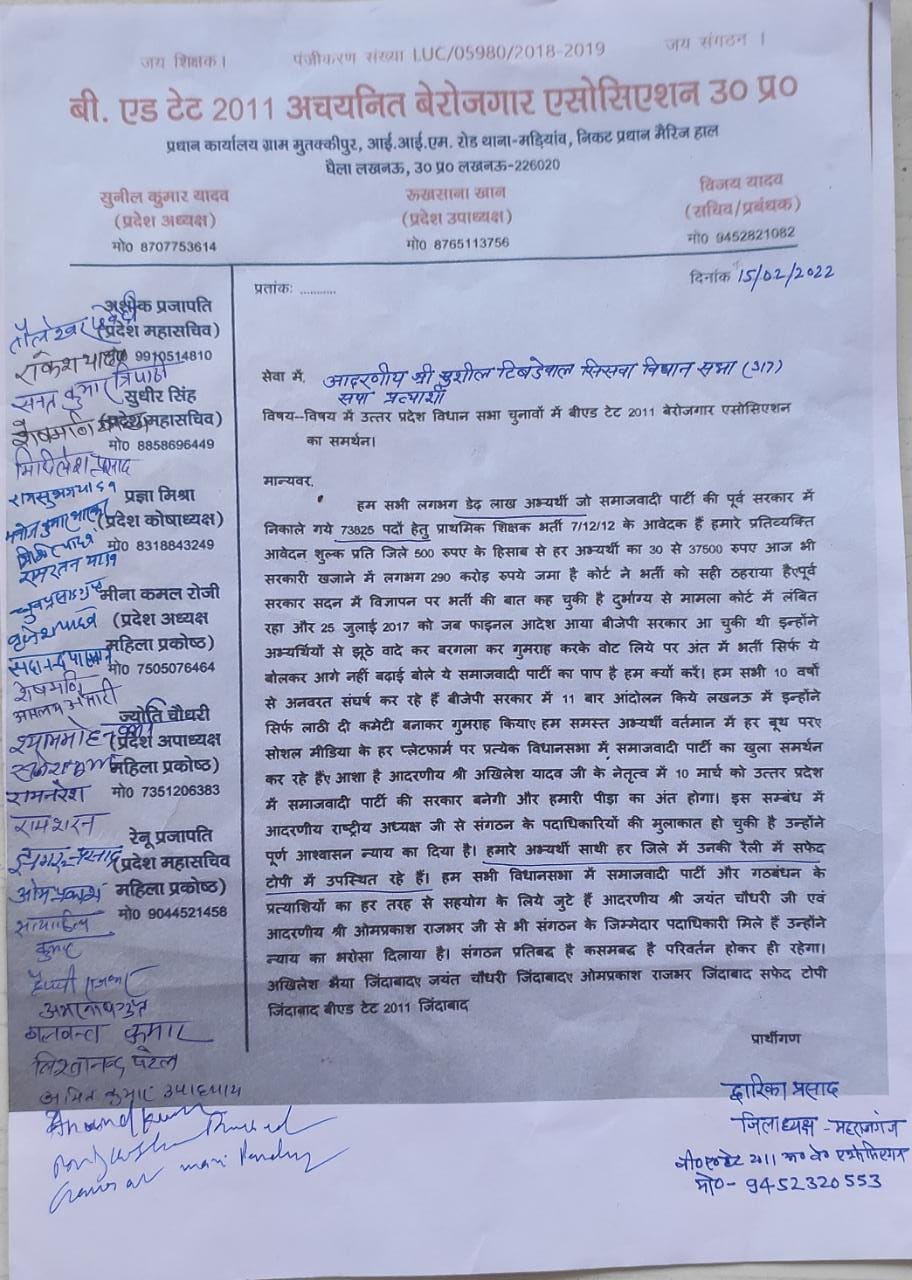 जय शिक्षक।
पंजीकरण संख्या LUC/05980/2018-2019
जय संगठन ।
बी. एड टेट 2011 अचयनित बेरोजगार एसोसिएशन उ0 प्र0
प्रधान कार्यालय ग्राम मुतक्कीपुर, आई.आई.एम. रोड थाना-मड़ियांव, निकट प्रधान मैरिज हाल
घैला लखनऊ, उ0 प्र0 लखनऊ-226020
सुनील कुमार यादव
(प्रदेश अध्यक्ष)
मो0 8707753614
रूखसाना खान
(प्रदेश उपाध्यक्ष)
मो0 8765113756
विजय यादव
(सचिव/प्रबंधक)
मो0 9452821082
दिनांक 15/02/2022
प्रतांकः ..........
अशोक प्रजापति
(प्रदेश महासचिव)
राकेश यादव 9910514810
सन्त कुमार त्रिपाठी
सुधीर सिंह
(प्रदेश महासचिव)
मो0 8858696449
मिथिलेश प्रसाद
रामसुभग यादव
प्रज्ञा मिश्रा
(प्रदेश कोषाध्यक्ष)
मो0 8318843249
रामरतन यादव
मीना कमल रोजी
(प्रदेश अध्यक्ष
महिला प्रकोष्ठ)
मो0 7505076464
शेषमणि
ज्योति चौधरी
(प्रदेश अपाध्यक्ष
महिला प्रकोष्ठ)
रामनरेश मो0 7351206383
रामशरन
रेनू प्रजापति
(प्रदेश महासचिव
ओमप्रकाश महिला प्रकोष्ठ)
मो0 9044521458
कुमार
बलवन्त कुमार
विश्वानन्द पटेल
अमित कुमार उपाध्याय
सेवा में, आदरणीय श्री सुशील टिबडेवाल सिसवा विधान सभा (317)
सपा प्रत्याशी
विषय–विषय में उत्तर प्रदेश विधान सभा चुनावों में बीएड टेट 2011 बेरोजगार एसोसिएशन
का समर्थन।
मान्यवर,
हम सभी लगभग डेढ़ लाख अभ्यर्थी जो समाजवादी पार्टी की पूर्व सरकार में
निकाले गये 73825 पदों हेतु प्राथमिक शिक्षक भर्ती 7/12/12 के आवेदक हैं हमारे प्रतिव्यक्ति
आवेदन शुल्क प्रति जिले 500 रुपए के हिसाब से हर अभ्यर्थी का 30 से 37500 रुपए आज भी
सरकारी खजाने में लगभग 290 करोड़ रुपये जमा है कोर्ट ने भर्ती को सही ठहराया हैएपूर्व
सरकार सदन में विज्ञापन पर भर्ती की बात कह चुकी है दुर्भाग्य से मामला कोर्ट में लंबित
रहा और 25 जुलाई 2017 को जब फाइनल आदेश आया बीजेपी सरकार आ चुकी थी इन्होंने
अभ्यर्थियों से झूठे वादे कर बरगला कर गुमराह करके वोट लिये पर अंत में भर्ती सिर्फ ये
बोलकर आगे नहीं बढ़ाई बोले ये समाजवादी पार्टी का पाप है हम क्यों करें। हम सभी 10 वर्षो
से अनवरत संघर्ष कर रहे हैं बीजेपी सरकार में 11 बार आंदोलन किये लखनऊ में इन्होंने
सिर्फ लाठी दी कमेटी बनाकर गुमराह कियाए हम समस्त अभ्यर्थी वर्तमान में हर बूथ परए
सोशल मीडिया के हर प्लेटफार्म पर प्रत्येक विधानसभा में समाजवादी पार्टी का खुला समर्थन
कर रहे हैंए आशा है आदरणीय श्री अखिलेश यादव जी के नेतृत्व में 10 मार्च को उत्तर प्रदेश
में समाजवादी पार्टी की सरकार बनेगी और हमारी पीड़ा का अंत होगा। इस सम्बंध में
आदरणीय राष्ट्रीय अध्यक्ष जी से संगठन के पदाधिकारियों की मुलाकात हो चुकी है उन्होंने
पूर्ण आश्वासन न्याय का दिया है। हमारे अभ्यर्थी साथी हर जिले में उनकी रैली में सफेद
टोपी में उपस्थित रहे हैं। हम सभी विधानसभा में समाजवादी पार्टी और गठबंधन के
प्रत्याशियों का हर तरह से सहयोग के लिये जुटे हैं आदरणीय श्री जयंत चौधरी जी एवं
आदरणीय श्री ओमप्रकाश राजभर जी से भी संगठन के जिम्मेदार पदाधिकारी मिले हैं उन्होंने
न्याय का भरोसा दिलाया है। संगठन प्रतिबद्ध है कसमबद्ध है परिवर्तन होकर ही रहेगा।
अखिलेश भैया जिंदाबादए जयंत चौधरी जिंदाबादए ओमप्रकाश राजभर जिंदाबाद सफेद टोपी
जिंदाबाद बीएड टेट 2011 जिंदाबाद
प्रार्थीगण
द्वारिका प्रसाद
जिलाध्यक्ष - महराजगंज
बी0एड टेट 2011
मो0- 9452320553